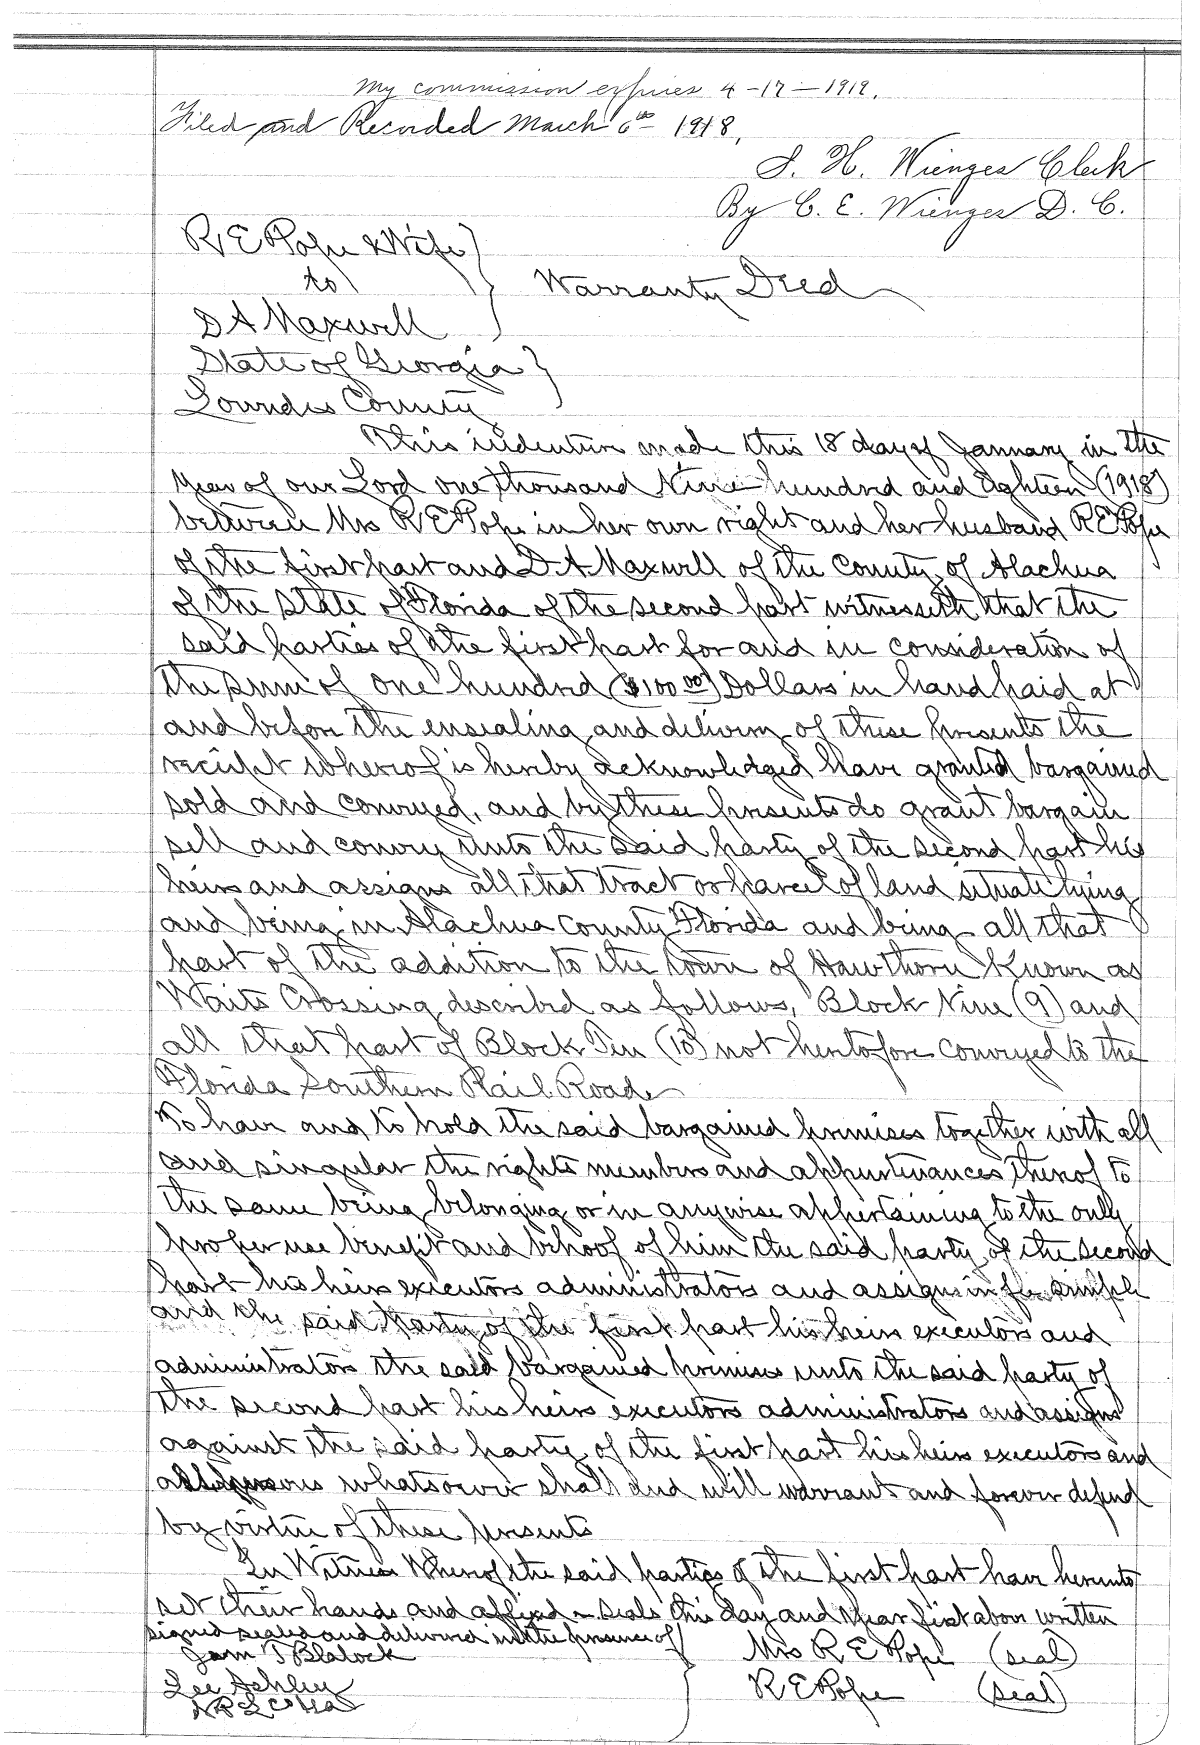 My commission expires 4-17-1919.
Filed and Recorded March 6th 1918,
S. H. Wienges Clerk
By C. E. Wienges D. C.
R E Pope & Wife
to
Warranty Deed
D A Maxwell
State of Georgia
Lowndes County
This indenture made this 18 day of January in the
year of our Lord one thousand Nine hundred and Eighteen (1918)
between Mrs R E Pope in her own right and her husband R E Pope
of the first part and D A Maxwell of the County of Alachua
of the State of Florida of the second part witnesseth that the
said parties of the first part for and in consideration of
the sum of one hundred ($100 00) Dollars in hand paid at
and before the ensealing and delivery of these presents the
receipt whereof is hereby acknowledged have granted bargained
sold and conveyed, and by these presents do grant bargain
sell and convey unto the said party of the second part his
heirs and assigns all that tract or parcel of land situate lying
and being in Alachua County Florida and being all that
part of the addition to the town of Hawthorn known as
Waits Crossing described as follows, Block Nine (9) and
all that part of Block Ten (10) not heretofore conveyed to the
Florida Southern Rail Road
To have and to hold the said bargained premises together with all
and singular the rights members and appurtenances thereof to
the same being belonging or in anywise appertaining to the only
proper use benefit and behoof of him the said party of the second
part his heirs executors administrators and assigns in fee simple
and the said Party of the first part his heirs executors and
administrators the said bargained premises unto the said party of
the second part his heirs executors administrators and assigns
against the said partie of the first part his heirs executors and
whatsoever shall and will warrant and forever defend
by virtue of these presents
In Witness Whereof the said parties of the first part have hereunto
set their hands and affixed seals this day and year first above written
signed sealed and delivered in the presence of
Mrs R E Pope (seal)
T Blalock
Lee Ashley
R E Pope (seal)